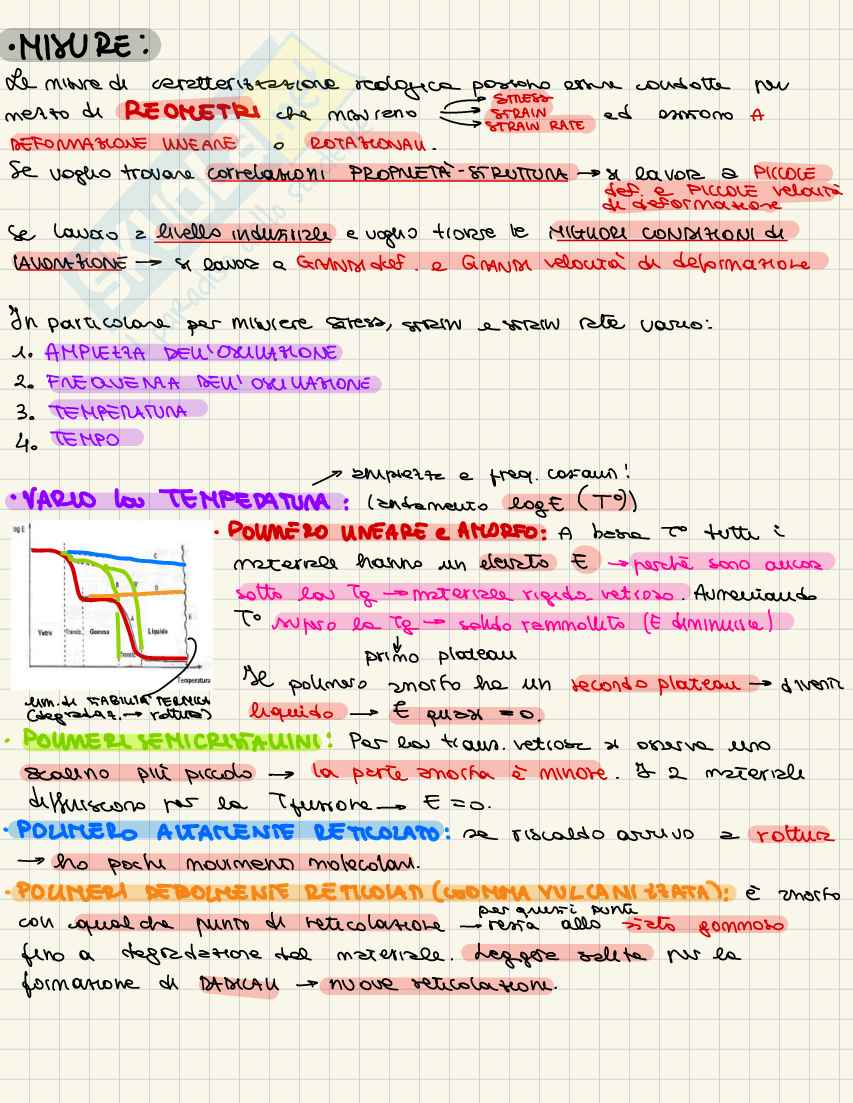 • MISURE:
Le misure di caratterizzazione reologica possono essere condotte per
mezzo di REOMETRI che misurano → STRESS → STRAIN → STRAIN RATE ed esistono A
DEFORMAZIONE LINEARE o ROTAZIONALI.
Se voglio trovare correlazioni PROPRIETÀ-STRUTTURA → si lavora a PICCOLE
def. e PICCOLE velocità
di deformazione
Se lavoro a livello industriale e voglio trovare le MIGLIORI CONDIZIONI di
LAVORAZIONE → si lavora a GRANDI def. e GRANDI velocità di deformazione
In particolare per misurare stress, strain e strain rate vario:
1. AMPIEZZA DELL'OSCILLAZIONE
2. FREQUENZA DELL'OSCILLAZIONE
3. TEMPERATURA
4. TEMPO
→ ampiezza e freq. costanti!
• VARIO la TEMPERATURA: (andamento logE (T°))
• POLIMERO LINEARE e AMORFO: A bassa T° tutti i
materiale hanno un elevato E → perché sono ancora
sotto la Tg → materiale rigido vetroso. Aumentando
T° supero la Tg → solido rammollito (E diminuisce)
primo plateau
Se polimero amorfo ha un secondo plateau → diventa
liquido → E quasi = 0.
log E
C
B
D
A
E
Vetro
Transiz.
Gomma
Liquido
Transiz.
Temperatura
lim. di STABILITÀ TERMICA
(degradaz. → rottura)
• POLIMERI SEMICRISTALLINI: Per la trans. vetrosa si osserva uno
scalino più piccolo → la parte amorfa è minore. I 2 materiali
differiscono per la Tfusione → E = 0.
• POLIMERO ALTAMENTE RETICOLATO: se riscaldo arrivo a rottura
→ ho pochi movimenti molecolari.
• POLIMERI DEBOLMENTE RETICOLATI (GOMMA VULCANIZZATA): è amorfo
con qualche punto di reticolazione → per questi punti resta allo stato gommoso
fino a degradazione del materiale. Leggera salita per la
formazione di RADICALI → nuove reticolazioni.